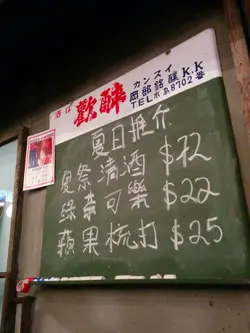 酒は
歓酔
カンスイ
岡部銘醸K.K
TEL木島8702番
夏日推介
夏祭 清酒 $72
綠茶可樂 $22
蘋果梳打 $25